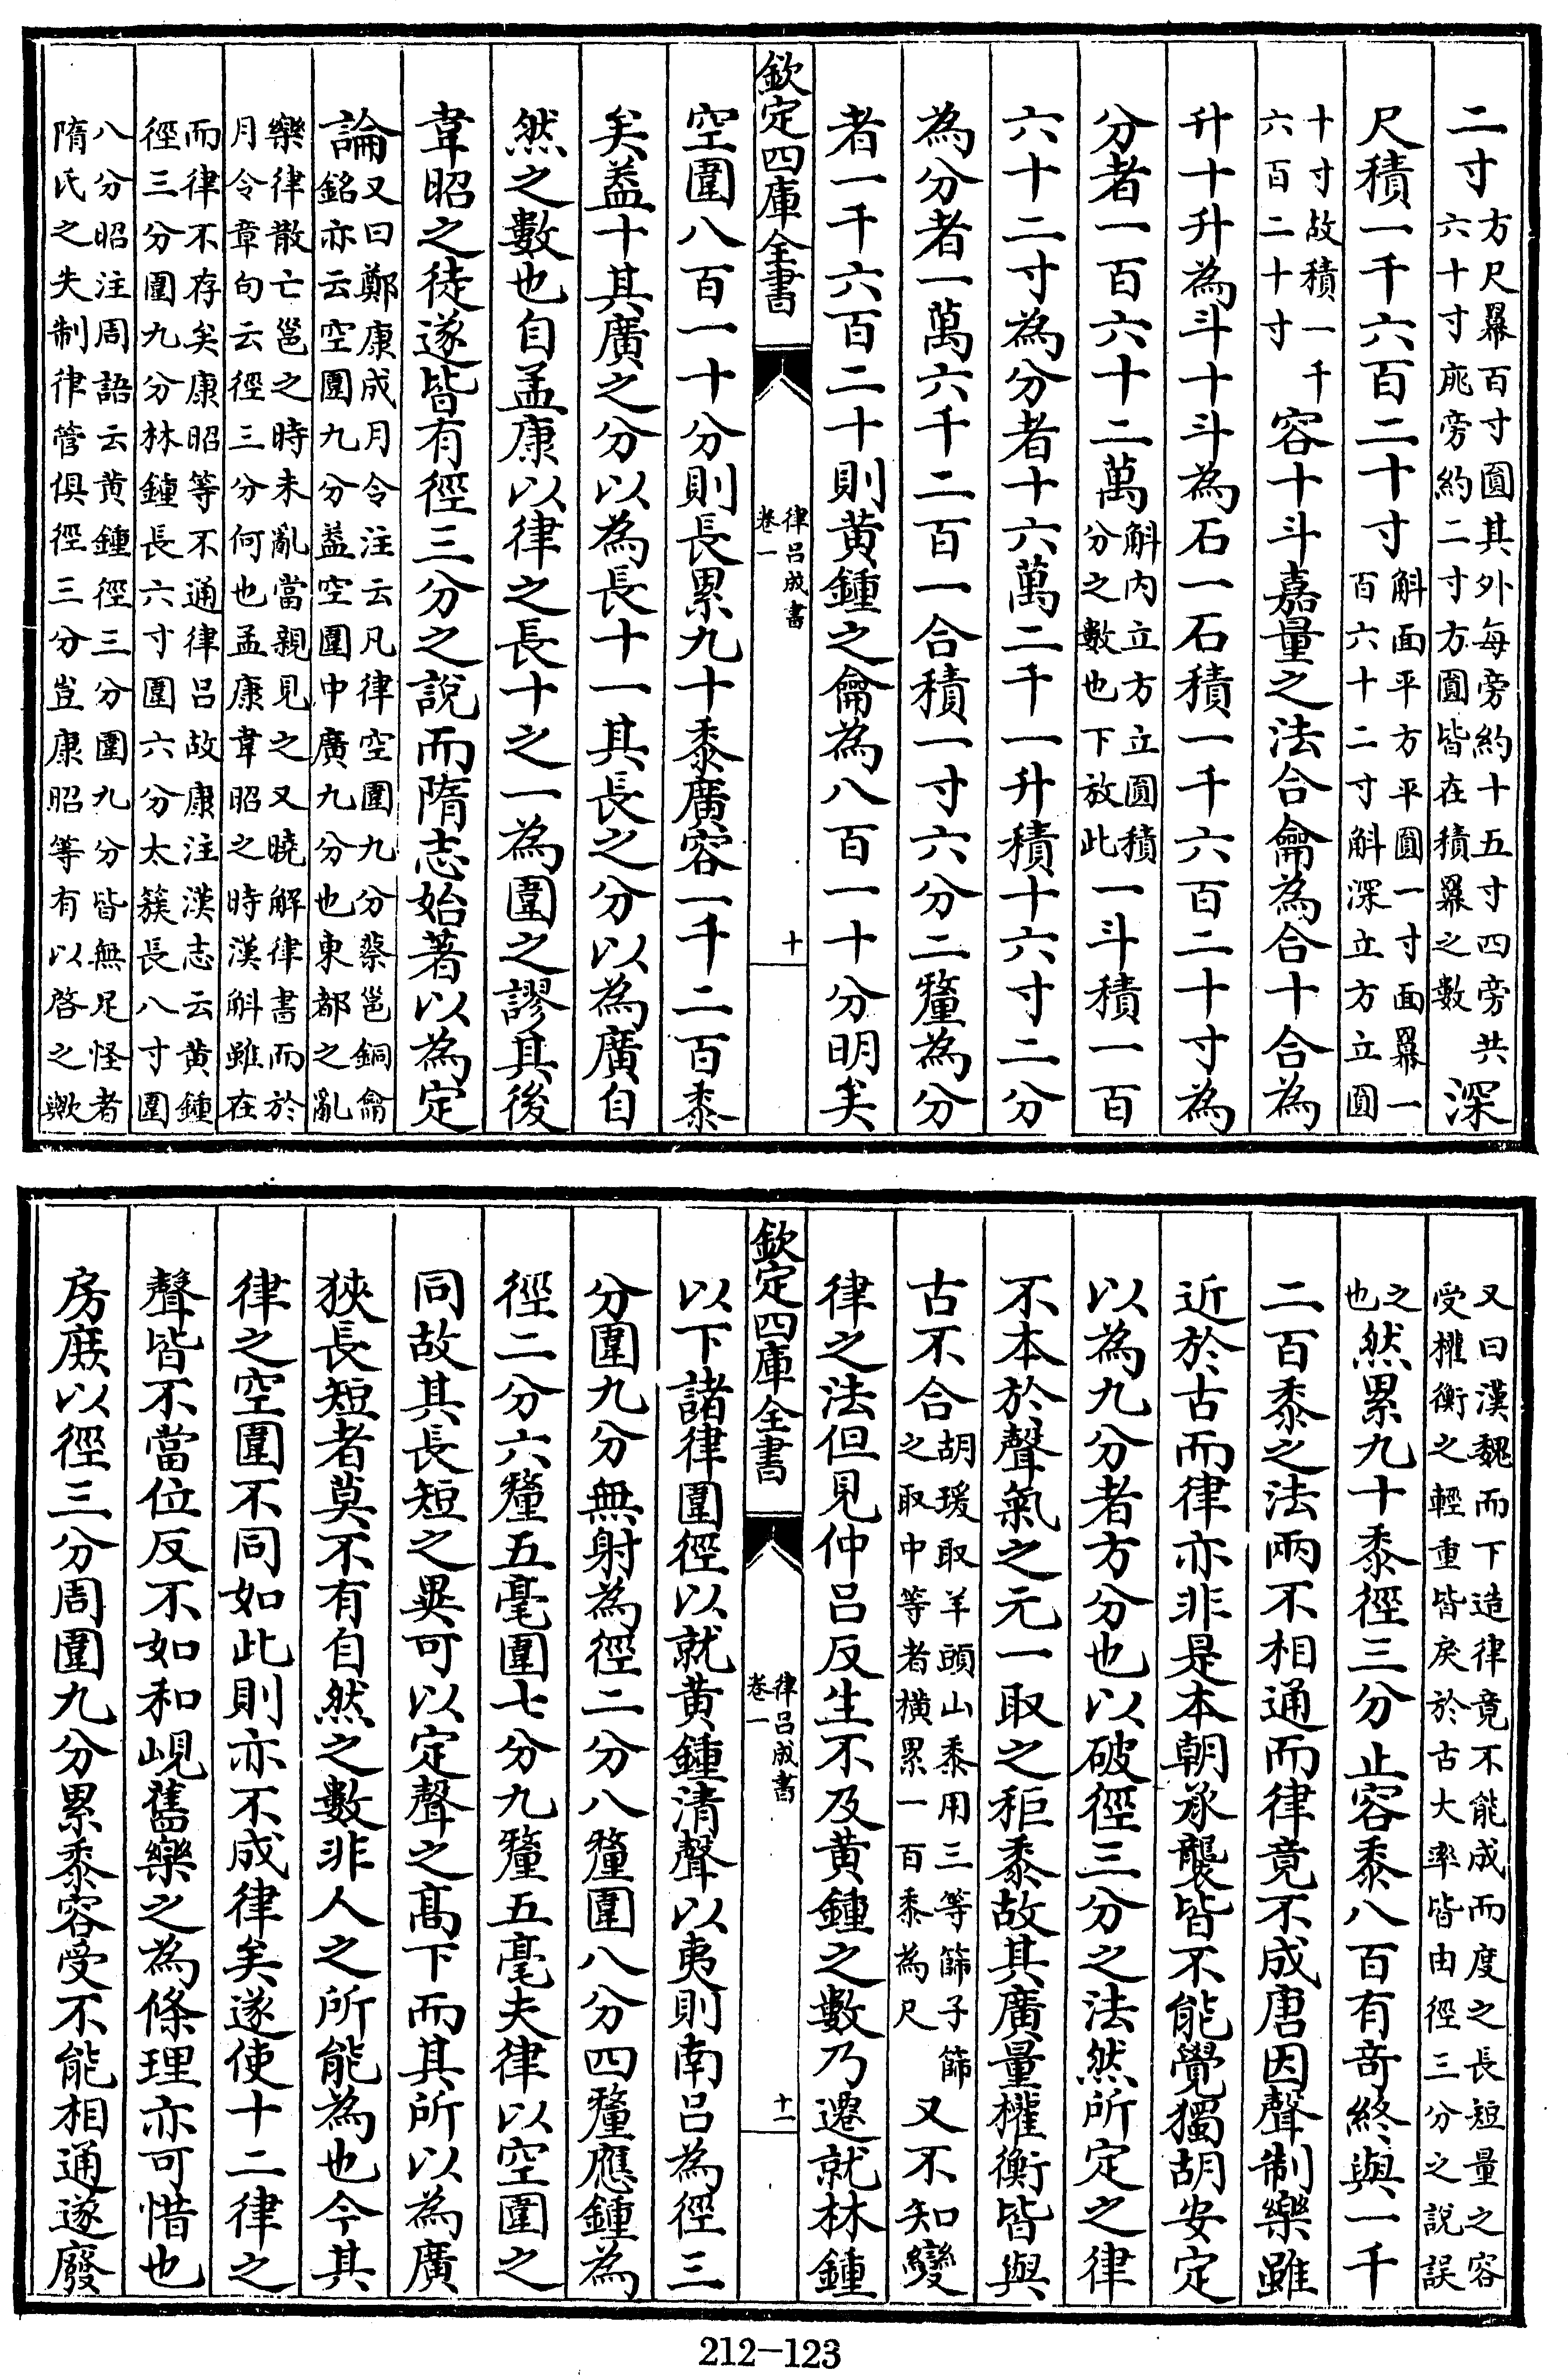 二寸方尺羃百寸圓其外每旁約十五寸四旁共六十寸庣旁約二寸方圓皆在積羃之數深
尺積一千六百二十寸斛面平方平圓一寸面羃一百六十二寸斛深立方立圓
十寸故積一千六百二十寸容十斗嘉量之法合龠為合十合為
升十升為斗十斗為石一石積一千六百二十寸為
分者一百六十二萬斛內立方立圓積分之數也下放此一斗積一百
六十二寸為分者十六萬二千一升積十六寸二分
為分者一萬六千二百一合積一寸六分二釐為分
者一千六百二十則黄鍾之龠為八百一十分明矣
欽定四庫全書
律吕成書
卷一
十
空圍八百一十分則長累九十黍廣容一千二百黍
矣葢十其廣之分以為長十一其長之分以為廣自
然之數也自孟康以律之長十之一為圍之謬其後
韋昭之徒遂皆有徑三分之說而隋志始著以為定
論又曰鄭康成月令注云凡律空圍九分蔡邕銅龠銘亦云空圍九分葢空圍中廣九分也東都之亂
樂律散亡邕之時未亂當親見之又曉解律書而於月令章句云徑三分何也孟康韋昭之時漢斛雖在
而律不存矣康昭等不通律吕故康注漢志云黄鍾徑三分圍九分林鍾長六寸圍六分太簇長八寸圍
八分昭注周語云黄鍾徑三分圍九分皆無足怪者隋氏之失制律管俱徑三分豈康昭等有以啓之歟
又曰漢魏而下造律竟不能成而度之長短量之容受權衡之輕重皆戾於古大率皆由徑三分之說誤
之也然累九十黍徑三分止容黍八百有竒終與一千
二百黍之法兩不相通而律竟不成唐因聲制樂雖
近於古而律亦非是本朝承襲皆不能覺獨胡安定
以為九分者方分也以破徑三分之法然所定之律
不本於聲氣之元一取之秬黍故其廣量權衡皆與
古不合胡瑗取羊頭山黍用三等篩子篩之取中等者橫累一百黍為尺又不知變
律之法但見仲吕反生不及黄鍾之數乃遷就林鍾
欽定四庫全書
律吕成書
卷一
十一
以下諸律圍徑以就黄鍾清聲以夷則南吕為徑三
分圍九分無射為徑二分八釐圍八分四釐應鍾為
徑二分六釐五毫圍七分九釐五毫夫律以空圍之
同故其長短之異可以定聲之髙下而其所以為廣
狹長短者莫不有自然之數非人之所能為也今其
律之空圍不同如此則亦不成律矣遂使十二律之
聲皆不當位反不如和峴舊樂之為條理亦可惜也
房庶以徑三分周圍九分累黍容受不能相通遂廢
212-123